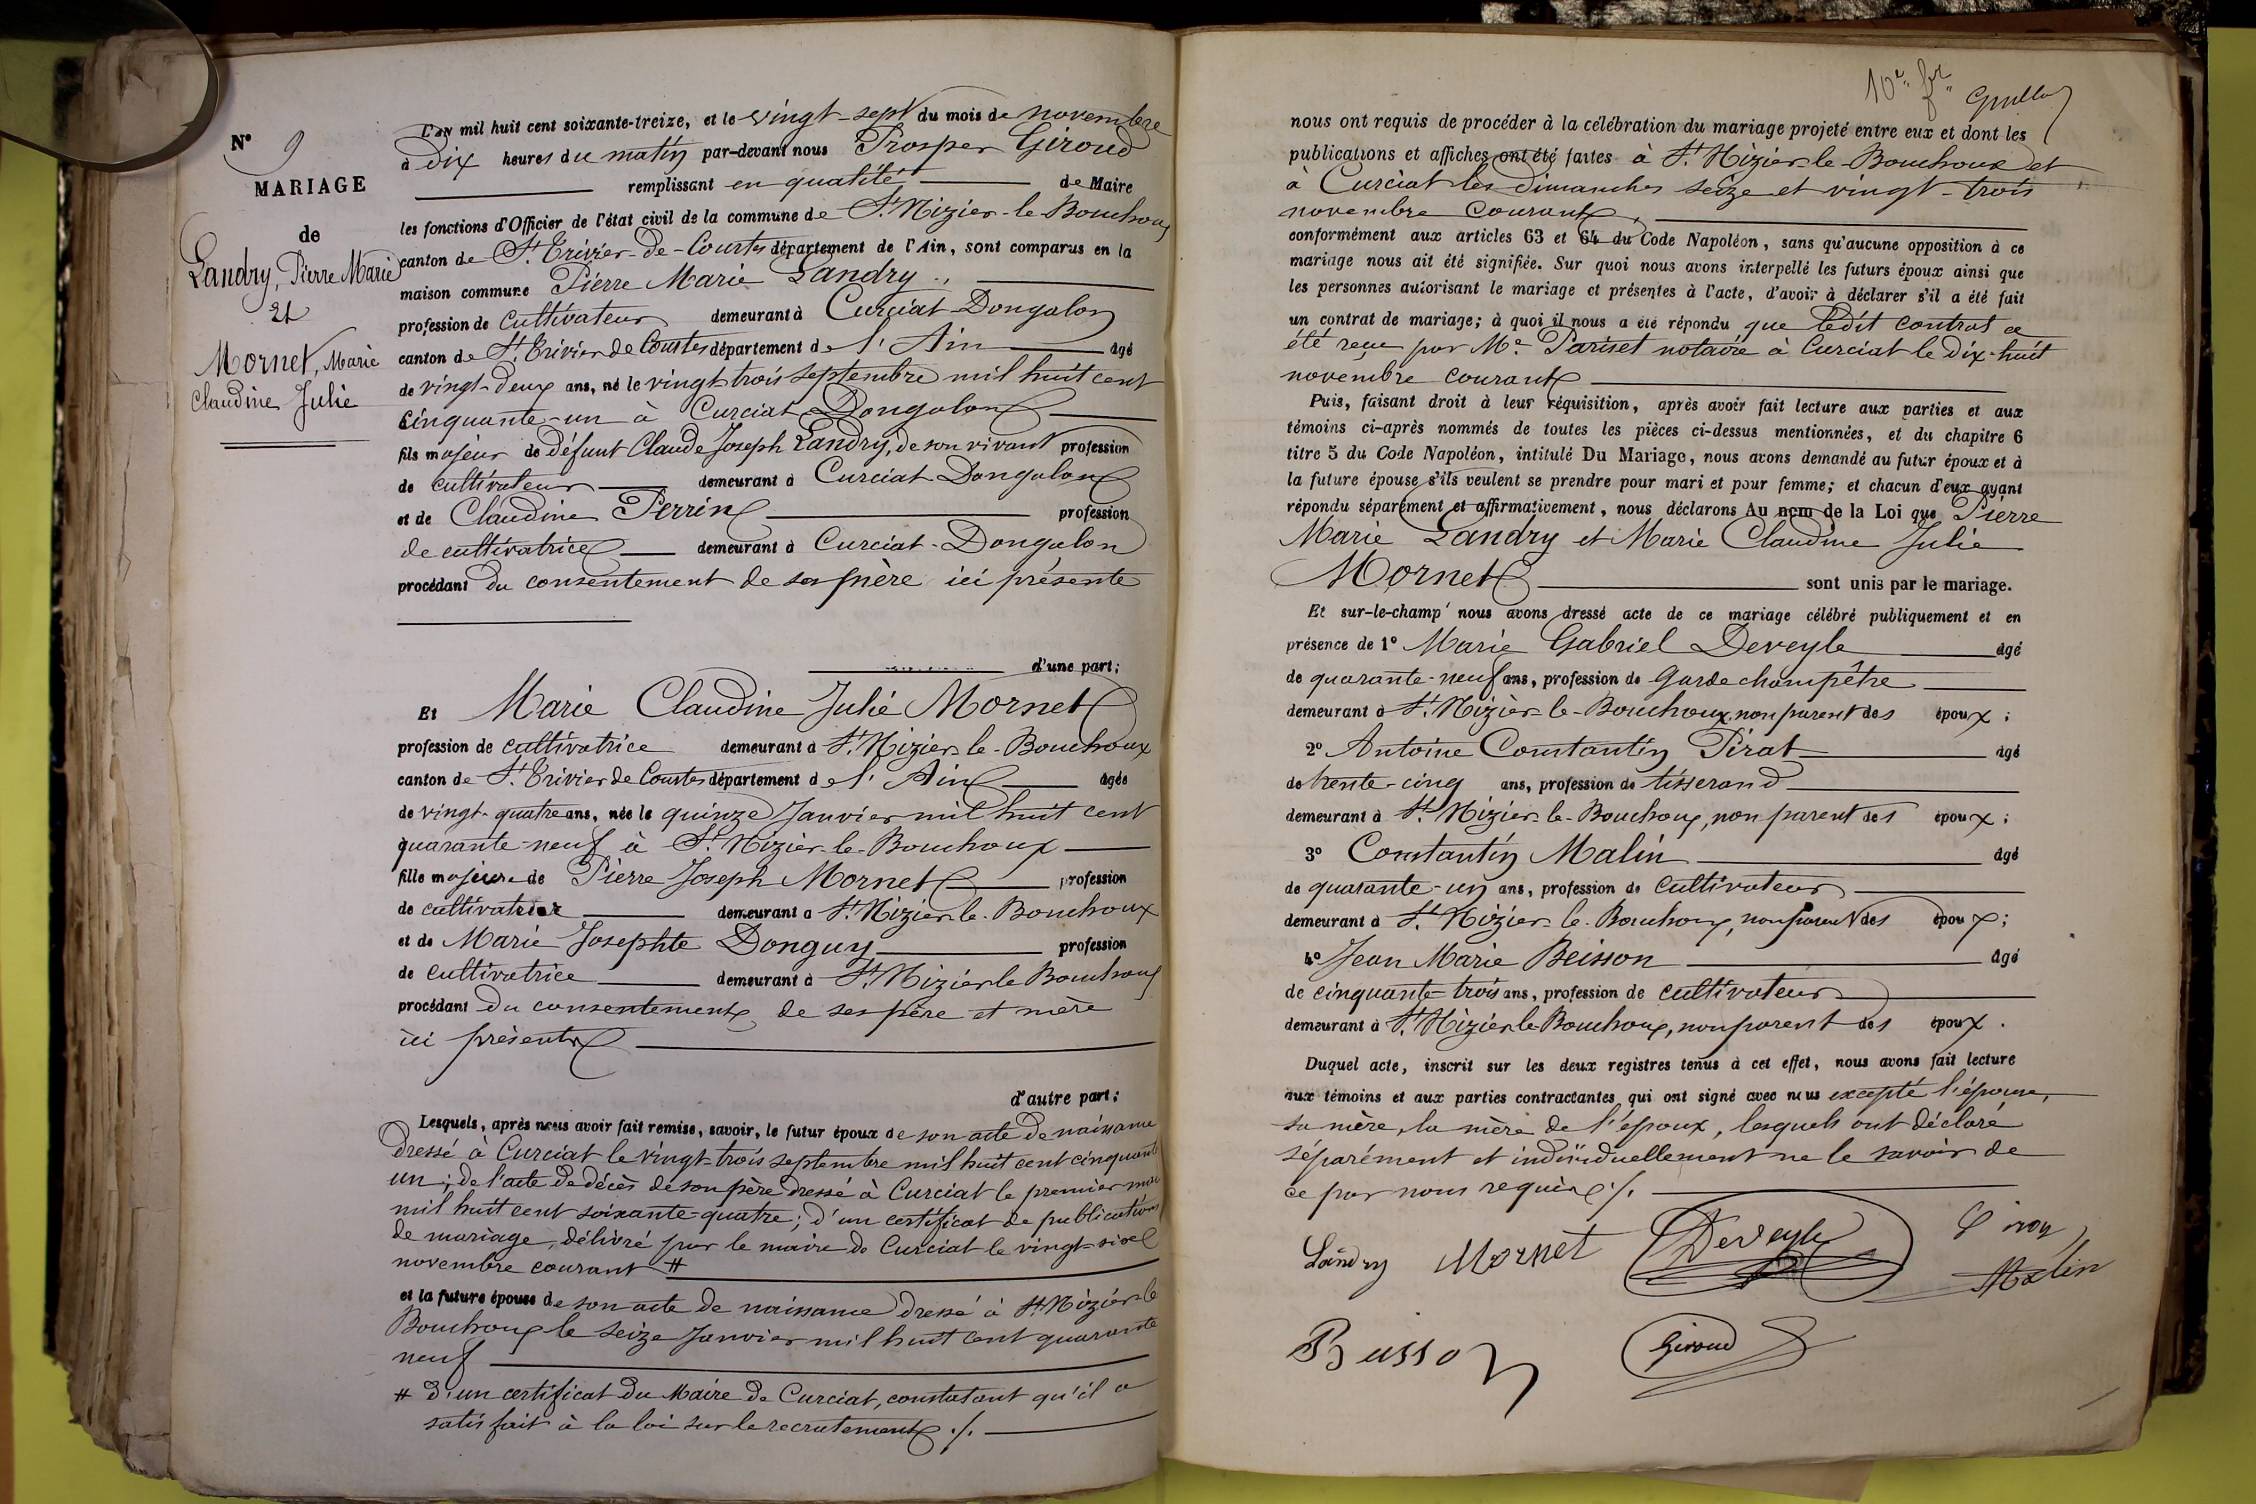 N° 9
MARIAGE
de
Landry, Pierre Marie
et
Mornet, Marie
Claudine Julie
L'an mil huit cent soixante-treize, et le vingt-sept du mois de novembre
à dix heures du matin par-devant nous Prosper Giroud
remplissant en qualité de Maire
les fonctions d'Officier de l'état civil de la commune de St Nizier-le-Bouchoux
canton de St Trivier-de-Courtes département de l'Ain, sont comparus en la
maison commune Pierre Marie Landry
profession de cultivateur demeurant à Curciat Dongalon
canton de St Trivier de Courtes département de l'Ain âgé
de vingt-deux ans, né le vingt-trois septembre mil huit cent
cinquante-un à Curciat Dongalon
fils majeur de défunt Claude Joseph Landry, de son vivant profession
de cultivateur demeurant à Curciat Dongalon
et de Claudine Perrin profession
de cultivatrice demeurant à Curciat-Dongalon
procédant du consentement de sa mère ici présente
d'une part;
Et Marie Claudine Julie Mornet
profession de cultivatrice demeurant à St Nizier-le-Bouchoux
canton de St Trivier de Courtes département de l'Ain âgée
de vingt-quatre ans, née le quinze Janvier mil huit cent
quarante-neuf à St Nizier-le-Bouchoux
fille majeure de Pierre Joseph Mornet profession
de cultivateur demeurant à St Nizier-le-Bouchoux
et de Marie Josephte Donguy profession
de cultivatrice demeurant à St Nizier le Bouchoux
procédant du consentement de ses père et mère
ici présents
d'autre part;
Lesquels, après nous avoir fait remise, savoir, le futur époux de son acte de naissance
dressé à Curciat le vingt-trois septembre mil huit cent cinquante
un; de l'acte de décès de son père dressé à Curciat le premier mai
mil huit cent soixante-quatre; d'un certificat de publications
de mariage, délivré par le maire de Curciat le vingt-six
novembre courant #
et la future épouse de son acte de naissance dressé à St Nizier-le
Bouchoux le seize Janvier mil huit cent quarante
neuf
# d'un certificat du Maire de Curciat, constatant qu'il a
satisfait à la loi sur le recrutement ./.
10e fr
nous ont requis de procéder à la célébration du mariage projeté entre eux et dont les
publications et affiches ont été faites à St Nizier-le-Bouchoux et
à Curciat les Dimanches seize et vingt-trois
novembre courant,
conformément aux articles 63 et 64 du Code Napoléon, sans qu'aucune opposition à ce
mariage nous ait été signifiée. Sur quoi nous avons interpellé les futurs époux ainsi que
les personnes autorisant le mariage et présentes à l'acte, d'avoir à déclarer s'il a été fait
un contrat de mariage; à quoi il nous a été répondu que ledit contrat a
été reçu par Me Pariset notaire à Curciat le dix-huit
novembre courant
Puis, faisant droit à leur réquisition, après avoir fait lecture aux parties et aux
témoins ci-après nommés de toutes les pièces ci-dessus mentionnées, et du chapitre 6
titre 5 du Code Napoléon, intitulé Du Mariage, nous avons demandé au futur époux et à
la future épouse s'ils veulent se prendre pour mari et pour femme; et chacun d'eux ayant
répondu séparément et affirmativement, nous déclarons Au nom de la Loi que Pierre
Marie Landry et Marie Claudine Julie
Mornet sont unis par le mariage.
Et sur-le-champ nous avons dressé acte de ce mariage célébré publiquement et en
présence de 1° Marie Gabriel Deveyle âgé
de quarante-neuf ans, profession de Garde champêtre
demeurant à St Nizier-le-Bouchoux, non parent des époux;
2° Antoine Constantin Pirat âgé
de trente-cinq ans, profession de tisserand
demeurant à St Nizier-le-Bouchoux, non parent des époux;
3° Constantin Malin âgé
de quarante-un ans, profession de cultivateur
demeurant à St Nizier-le-Bouchoux, non parent des époux;
4° Jean Marie Beisson âgé
de cinquante-trois ans, profession de cultivateur
demeurant à St Nizier-le-Bouchoux, non parent des époux.
Duquel acte, inscrit sur les deux registres tenus à cet effet, nous avons fait lecture
aux témoins et aux parties contractantes qui ont signé avec nous excepté l'épouse,
sa mère, la mère de l'époux, lesquels ont déclaré
séparément et individuellement ne le savoir de
ce par nous requis ./.
Landry Mornet Deveyle
Malin
Beisson Giroud